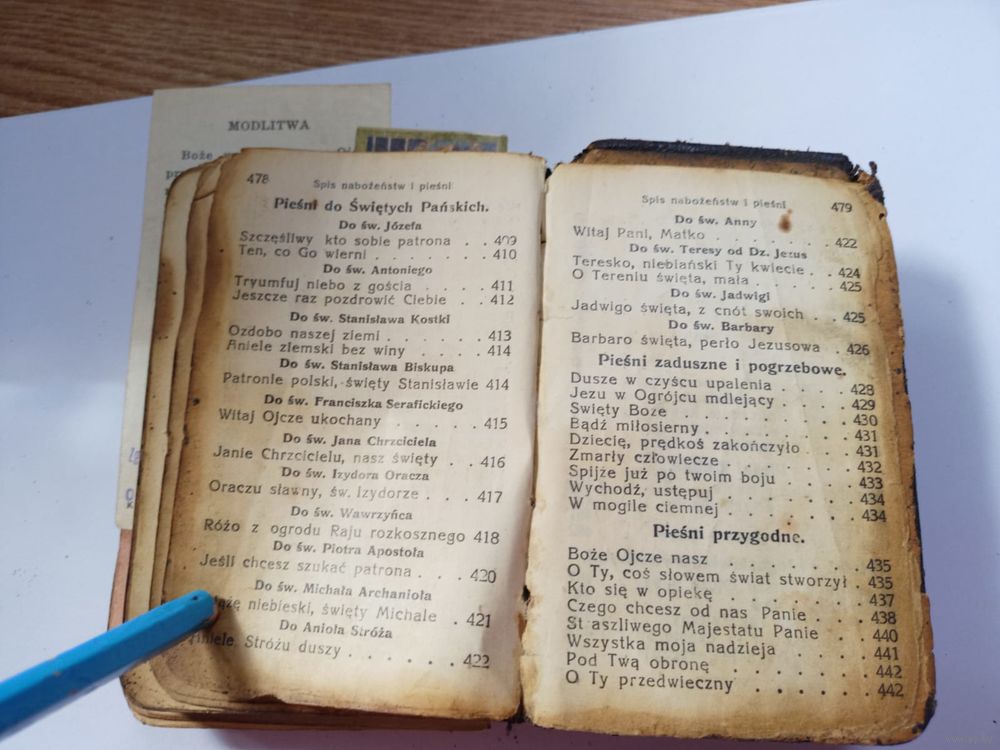 MODLITWA
Boże
478
Spis nabożeństw i pieśni
Pieśni do Świętych Pańskich.
Do św. Józefa
Szczęśliwy kto sobie patrona . . 409
Ten, co Go wierni . . . . . . 410
Do św. Antoniego
Tryumfuj niebo z gościa . . . . . 411
Jeszcze raz pozdrowić Ciebie . . . 412
Do św. Stanisława Kostki
Ozdobo naszej ziemi . . . . . . 413
Aniele ziemski bez winy . . . . 414
Do św. Stanisława Biskupa
Patronie polski, święty Stanisławie 414
Do św. Franciszka Serafickiego
Witaj Ojcze ukochany . . . . . 415
Do św. Jana Chrzciciela
Janie Chrzcicielu, nasz święty . . 416
Do św. Izydora Oracza
Oraczu sławny, św. Izydorze . . . 417
Do św. Wawrzyńca
Różo z ogrodu Raju rozkosznego 418
Do św. Piotra Apostoła
Jeśli chcesz szukać patrona . . . 420
Do św. Michała Archanioła
niebieski, święty Michale . 421
Do Anioła Stróża
Stróżu duszy . . . . . . 422
Spis nabożeństw i pieśni 479
Do św. Anny
Witaj Pani, Matko . . . . . . 422
Do św. Teresy od Dz. Jezus
Teresko, niebiański Ty kwiecie . . 424
O Tereniu święta, mała . . . . . 425
Do św. Jadwigi
Jadwigo święta, z cnót swoich . . 425
Do św. Barbary
Barbaro święta, perło Jezusowa . 426
Pieśni zaduszne i pogrzebowe.
Dusze w czyśćcu upalenia . . . . 428
Jezu w Ogrójcu mdlejący . . . . 429
Święty Boże . . . . . . . . 430
Bądź miłosierny . . . . . . . 431
Dziecię, prędkoś zakończyło . . . 431
Zmarły człowiecze . . . . . . 432
Spijże już po twoim boju . . . . 433
Wychodź, ustępuj . . . . . . 434
W mogile ciemnej . . . . . . 434
Pieśni przygodne.
Boże Ojcze nasz . . . . . . 435
O Ty, coś słowem świat stworzył . 435
Kto się w opiekę . . . . . . 437
Czego chcesz od nas Panie . . . 438
St aszliwego Majestatu Panie . . 440
Wszystka moja nadzieja . . . . 441
Pod Twą obronę . . . . . . . 442
O Ty przedwieczny . . . . . . 442